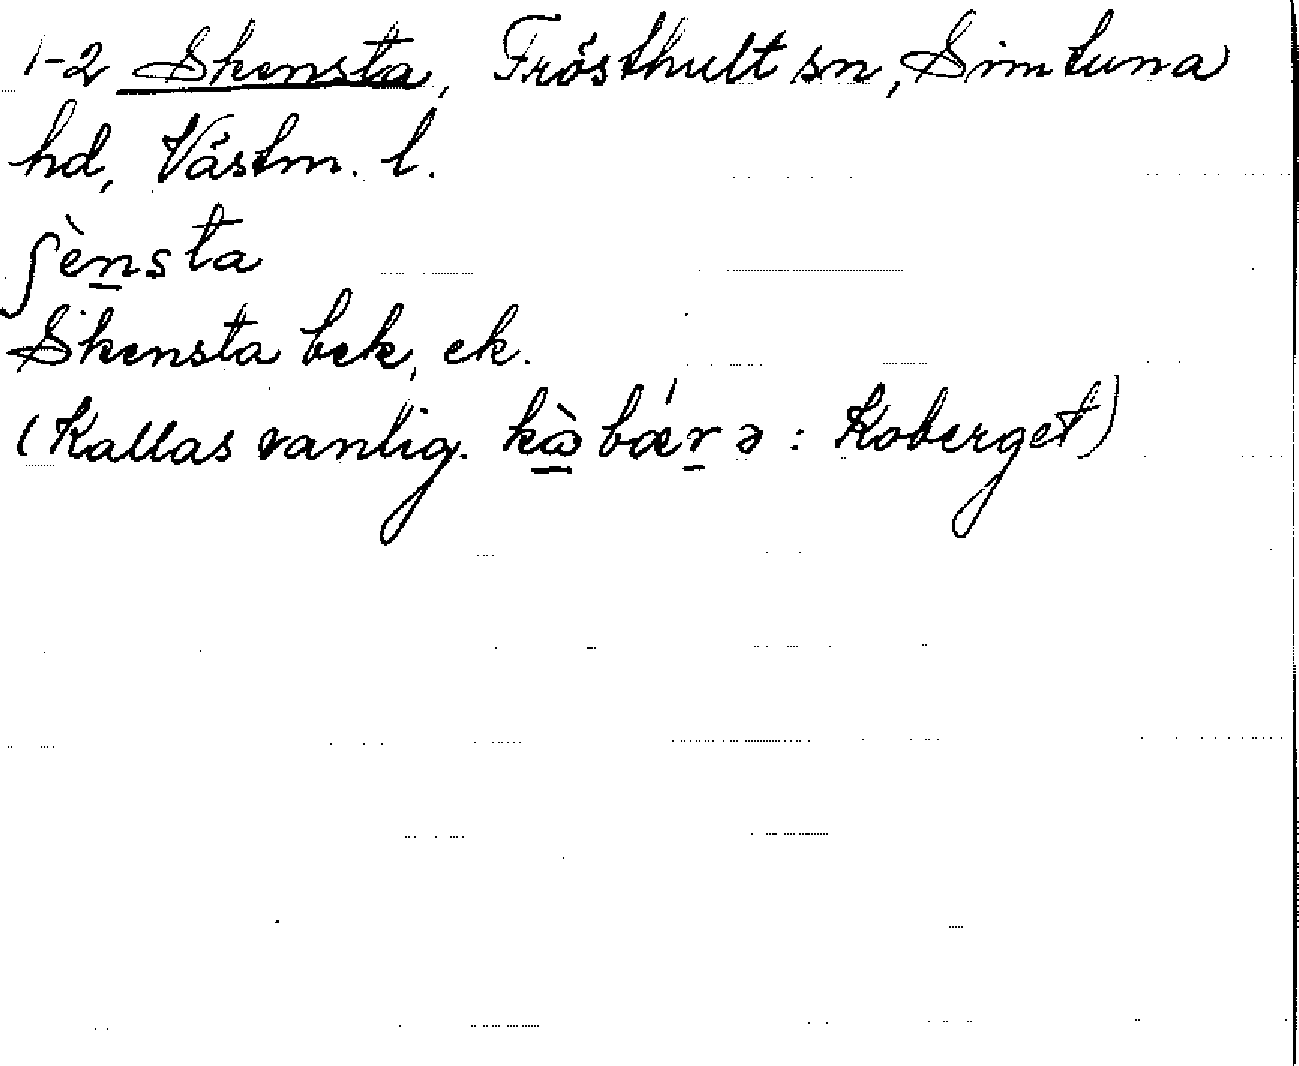 1-2 Skensta, Frösthult sn, Simtuna
hd, Västm. l.
ʃènsta
Skensta bek, ek.
(Kallas vanlig. kɷ̀bǽrə : Koberget)